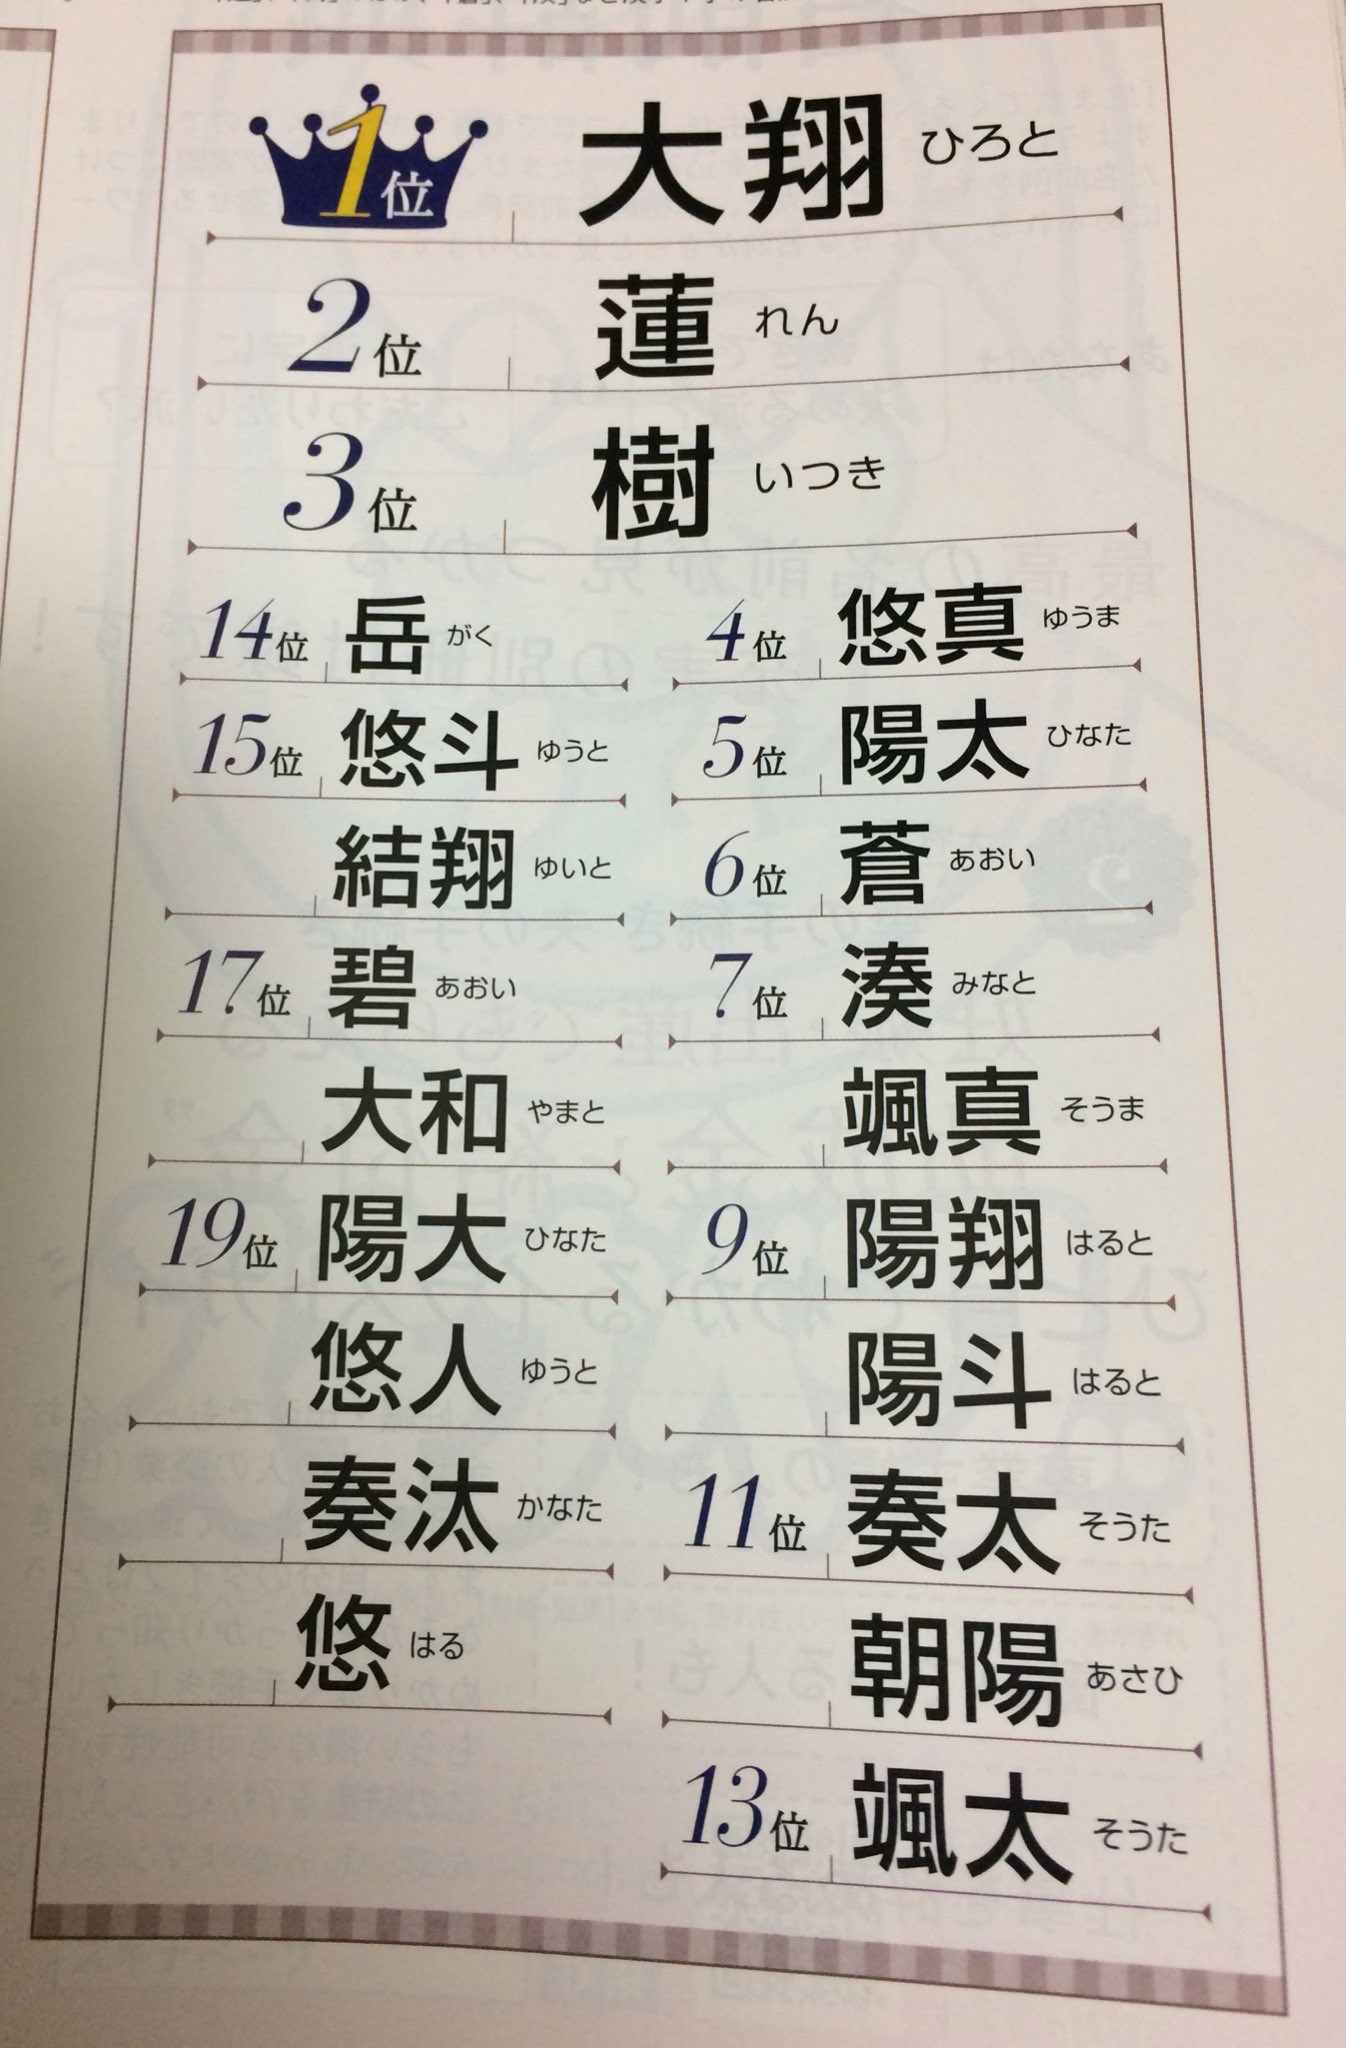 1位 大翔 ひろと
2位 蓮 れん
3位 樹 いつき
4位 悠真 ゆうま
5位 陽太 ひなた
6位 蒼 あおい
7位 湊 みなと
颯真 そうま
9位 陽翔 はると
陽斗 はると
11位 奏太 そうた
朝陽 あさひ
13位 颯太 そうた
14位 岳 がく
15位 悠斗 ゆうと
結翔 ゆいと
17位 碧 あおい
大和 やまと
19位 陽大 ひなた
悠人 ゆうと
奏汰 かなた
悠 はる